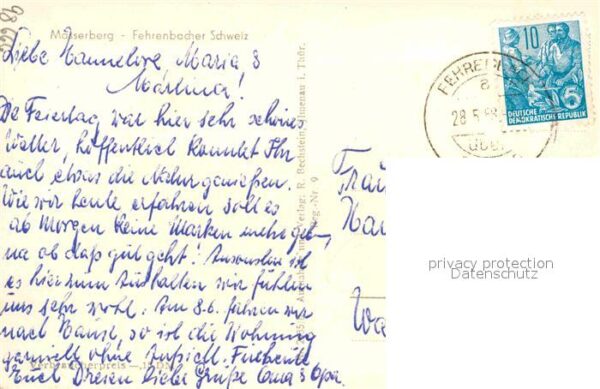 Masserberg - Fehrenbacher Schweiz
Liebe Hannelore Maria &
Marlina!
De Feiertag war hier sehr schönes
Wetter, hoffentlich konntet Ihr
auch etwas die Natur genießen.
Wie wir heute erfahren soll es
ab Morgen keine Marken mehr geb-,
na ob daß gut geht! Ansonsten ist
es hier zum Aushalten wir fühlen
uns sehr wohl. Am 8.6. fahren wir
nach Hause, so ist die Wohnung
ohne Aufsicht. Für heute
Euch Dreien Liebe Grüße Oma & Opa.
Verbraucherpreis
Verlag: R. Bechstein, Ilmenau i. Thür.
Reg.-Nr. 9
10
5
DEUTSCHE
DEMOKRATISCHE REPUBLIK
FEHRENBACH
a
28.5.58
privacy protection
Datenschutz